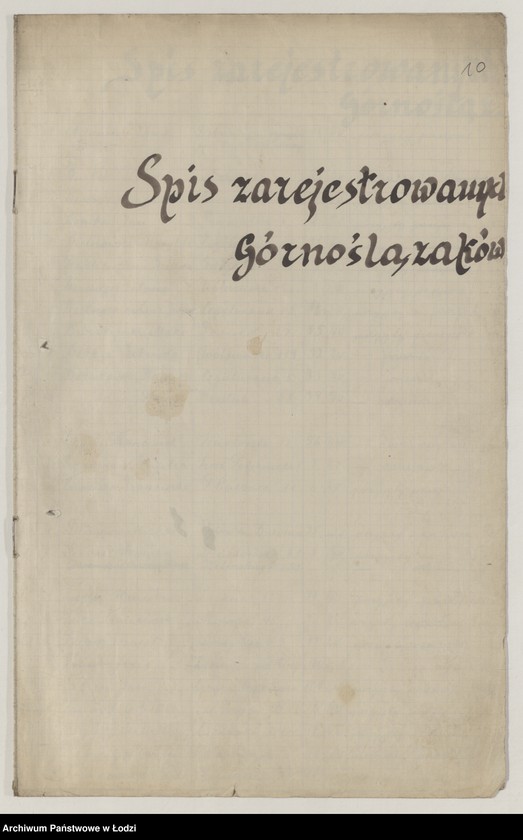 10
Spis zarejestrowanych
Górnoślązaków
Archiwum Państwowe w Łodzi